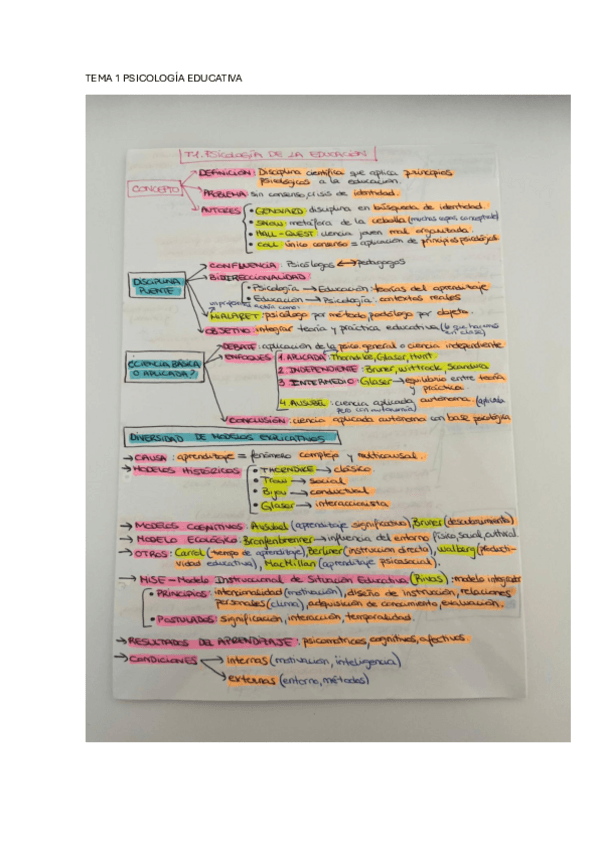 TEMA 1 PSICOLOGÍA EDUCATIVA
T1. PSICOLOGÍA DE LA EDUCACIÓN
CONCEPTO
DEFINICIÓN: Disciplina científica que aplica principios
psicológicos a la educación.
PROBLEMA: sin consenso, crisis de identidad.
AUTORES
• GENOVARD: disciplina en búsqueda de identidad.
• SNOW: metáfora de la cebolla (muchas capas conceptuales)
• HALL-QUEST: ciencia joven mal organizada.
• COLL: único consenso = aplicación de principios psicológicos
DISCIPLINA PUENTE
CONFLUENCIA: Psicólogos ↔ pedagogos
BIDIRECCIONALIDAD:
• Psicología → Educación: teorías del aprendizaje
• Educación → Psicología: contextos reales
MIALARET: psicólogo por método, pedólogo por objeto.
OBJETIVO: integrar teoría y práctica educativa (lo que hacemos en clase)
¿CIENCIA BÁSICA O APLICADA?
DEBATE: aplicación de la psico general o ciencia independiente
ENFOQUES
1. APLICADA: Thorndike, Glaser, Hunt.
2. INDEPENDIENTE: Bruner, Wittrock, Scandura
3. INTERMEDIO: Glaser → equilibrio entre teoría
y práctica
4. AUSUBEL: ciencia aplicada autónoma. (aplicada
pero con autonomía)
CONCLUSIÓN: ciencia aplicada autónoma con base psicológica
DIVERSIDAD DE MODELOS EXPLICATIVOS
→ CAUSA: aprendizaje = fenómeno complejo y multicausal.
→ MODELOS HISTÓRICOS
• THORNDIKE → clásico.
• Trow → social
• Bijou → conductual
• Glaser → interaccionista
→ MODELOS COGNITIVOS: Ausubel (aprendizaje significativo), Bruner (descubrimiento)
→ MODELO ECOLÓGICO: Bronfenbrenner → influencia del entorno físico, social, cultural
→ OTROS: Carrol (tiempo de aprendizaje), Berliner (instrucción directa), Walberg (producti-
vidad educativa), MacMillan (aprendizaje psicosocial).
→ MISE - Modelo Instruccional de Situación Educativa (Rivas): modelo integrador
• PRINCIPIOS: intencionalidad (motivación), diseño de instrucción, relaciones
personales (clima), adquisición de conocimiento, evaluación.
• POSTULADOS: significación, interacción, temporalidad.
→ RESULTADOS DEL APRENDIZAJE: psicomotrices, cognitivos, afectivos.
→ CONDICIONES
→ internas (motivación, inteligencia)
→ externas (entorno, métodos)